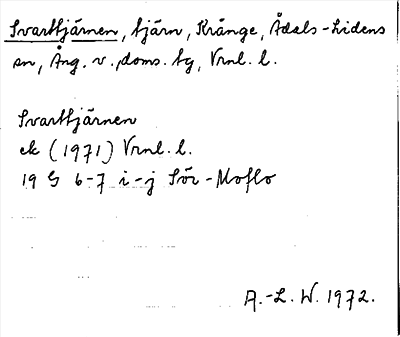 Svarttjärnen, tjärn, Krånge, Ådals-Lidens
sn, Ång. v. doms. tg, Vrnl. l.
Svarttjärnen
ek (1971) Vrnl. l.
19 G 6-7 i-j Sör-Moflo
A.-L. W. 1972.